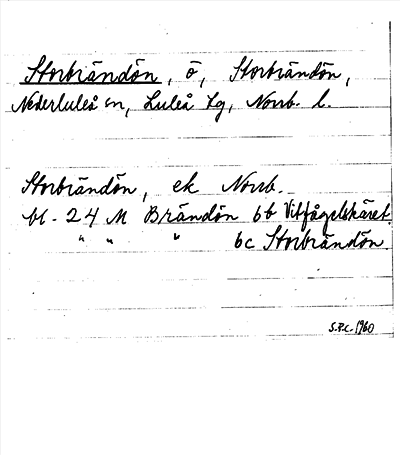 Storbrändön, ö, Storbrändön,
Nederluleå sn, Luleå tg, Norrb. l.
Storbrändön, ek Norrb.
bl. 24 M Brändön 6b Vitfågelskäret
" " " 6c Storbrändön
S.P.C. 1960